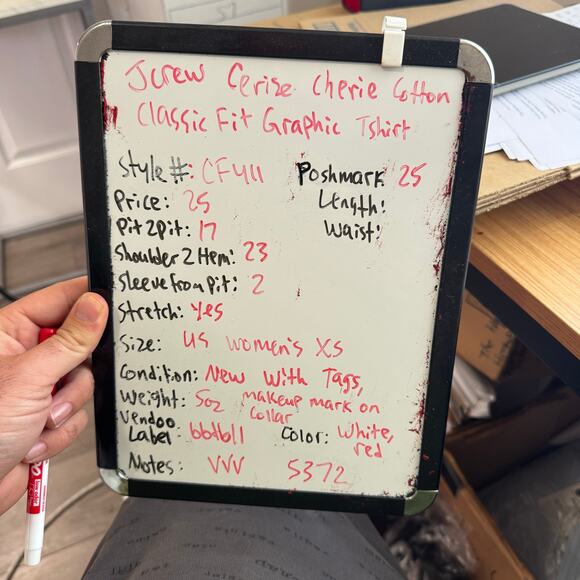 Jcrew Cerise Cherie Cotton
Classic Fit Graphic Tshirt
Style #: CF411 Poshmark 25
Price: 25 Length:
Pit2pit: 17 Waist:
Shoulder 2 Hem: 23
Sleeve from pit: 2
Stretch: Yes
Size: US Women's XS
Condition: New With Tags,
makeup mark on
collar
Weight: 5oz
Vendoo
Label: bb4b11 Color: White,
red
Notes: VVV 5372